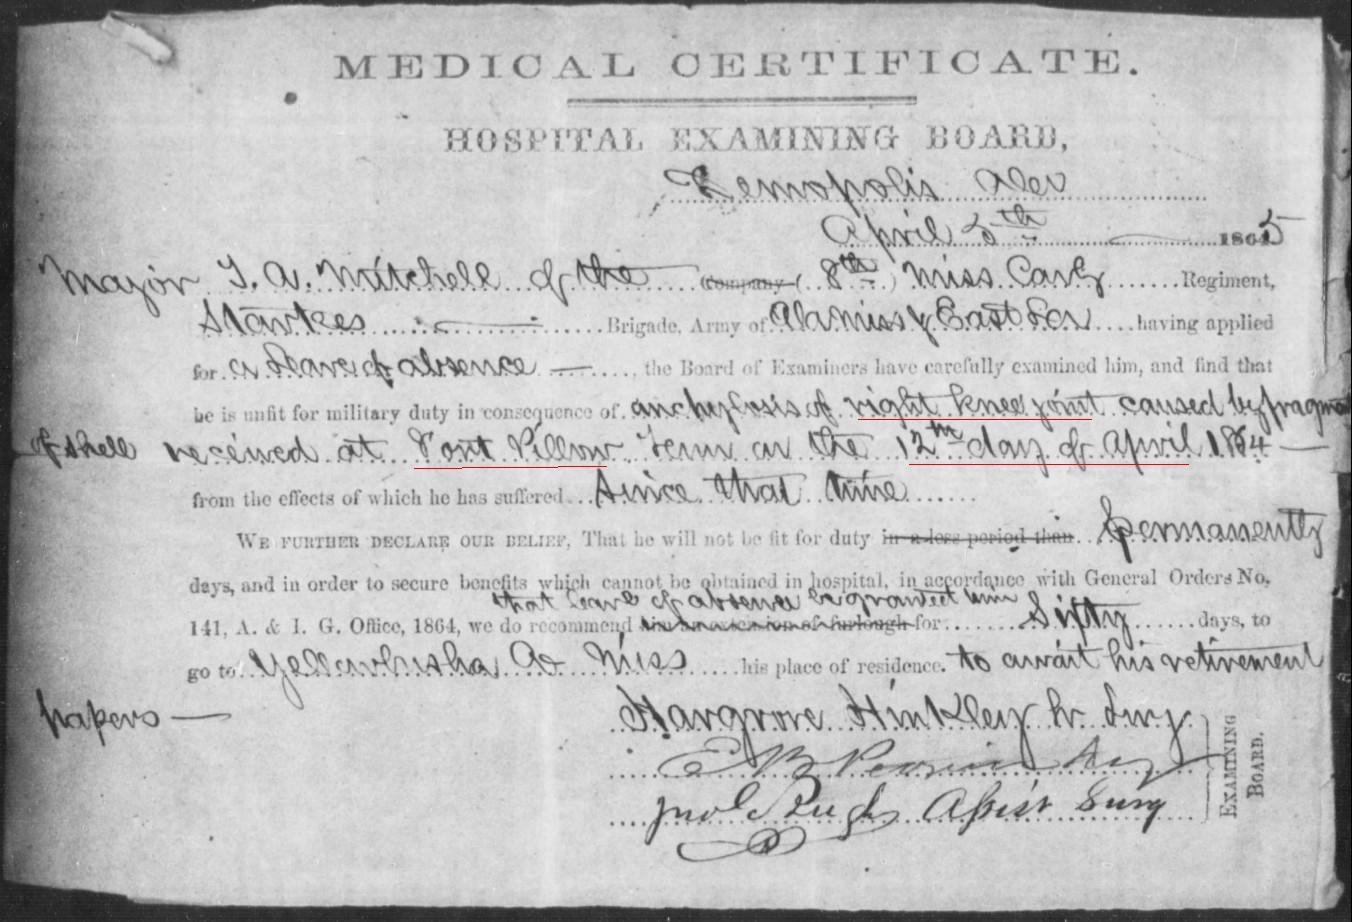 MEDICAL CERTIFICATE.
HOSPITAL EXAMINING BOARD,
Demopolis Ala
April 5th 1865
Major T. A. Mitchell of the (Company ( 8th ) Miss Cavly Regiment,
Starkes Brigade, Army of Ala Miss & East La having applied
for a leave of absence — , the Board of Examiners have carefully examined him, and find that
he is unfit for military duty in consequence of anchylosis of right knee joint caused by fragment
of shell received at Fort Pillow Tenn on the 12th day of April 1864 —
from the effects of which he has suffered since that time
WE FURTHER DECLARE OUR BELIEF, That he will not be fit for duty in a less period than permanently
days, and in order to secure benefits which cannot be obtained in hospital, in accordance with General Orders No.
that leave of absence be granted him
141, A. & I. G. Office, 1864, we do recommend for Sixty days, to
go to Yellowbusha Co Miss his place of residence. to await his retirement
papers —
Hargrove Hinkley Sr Surg.
E B Surg
Jno C Pugh Assist Surg
EXAMINING
BOARD.